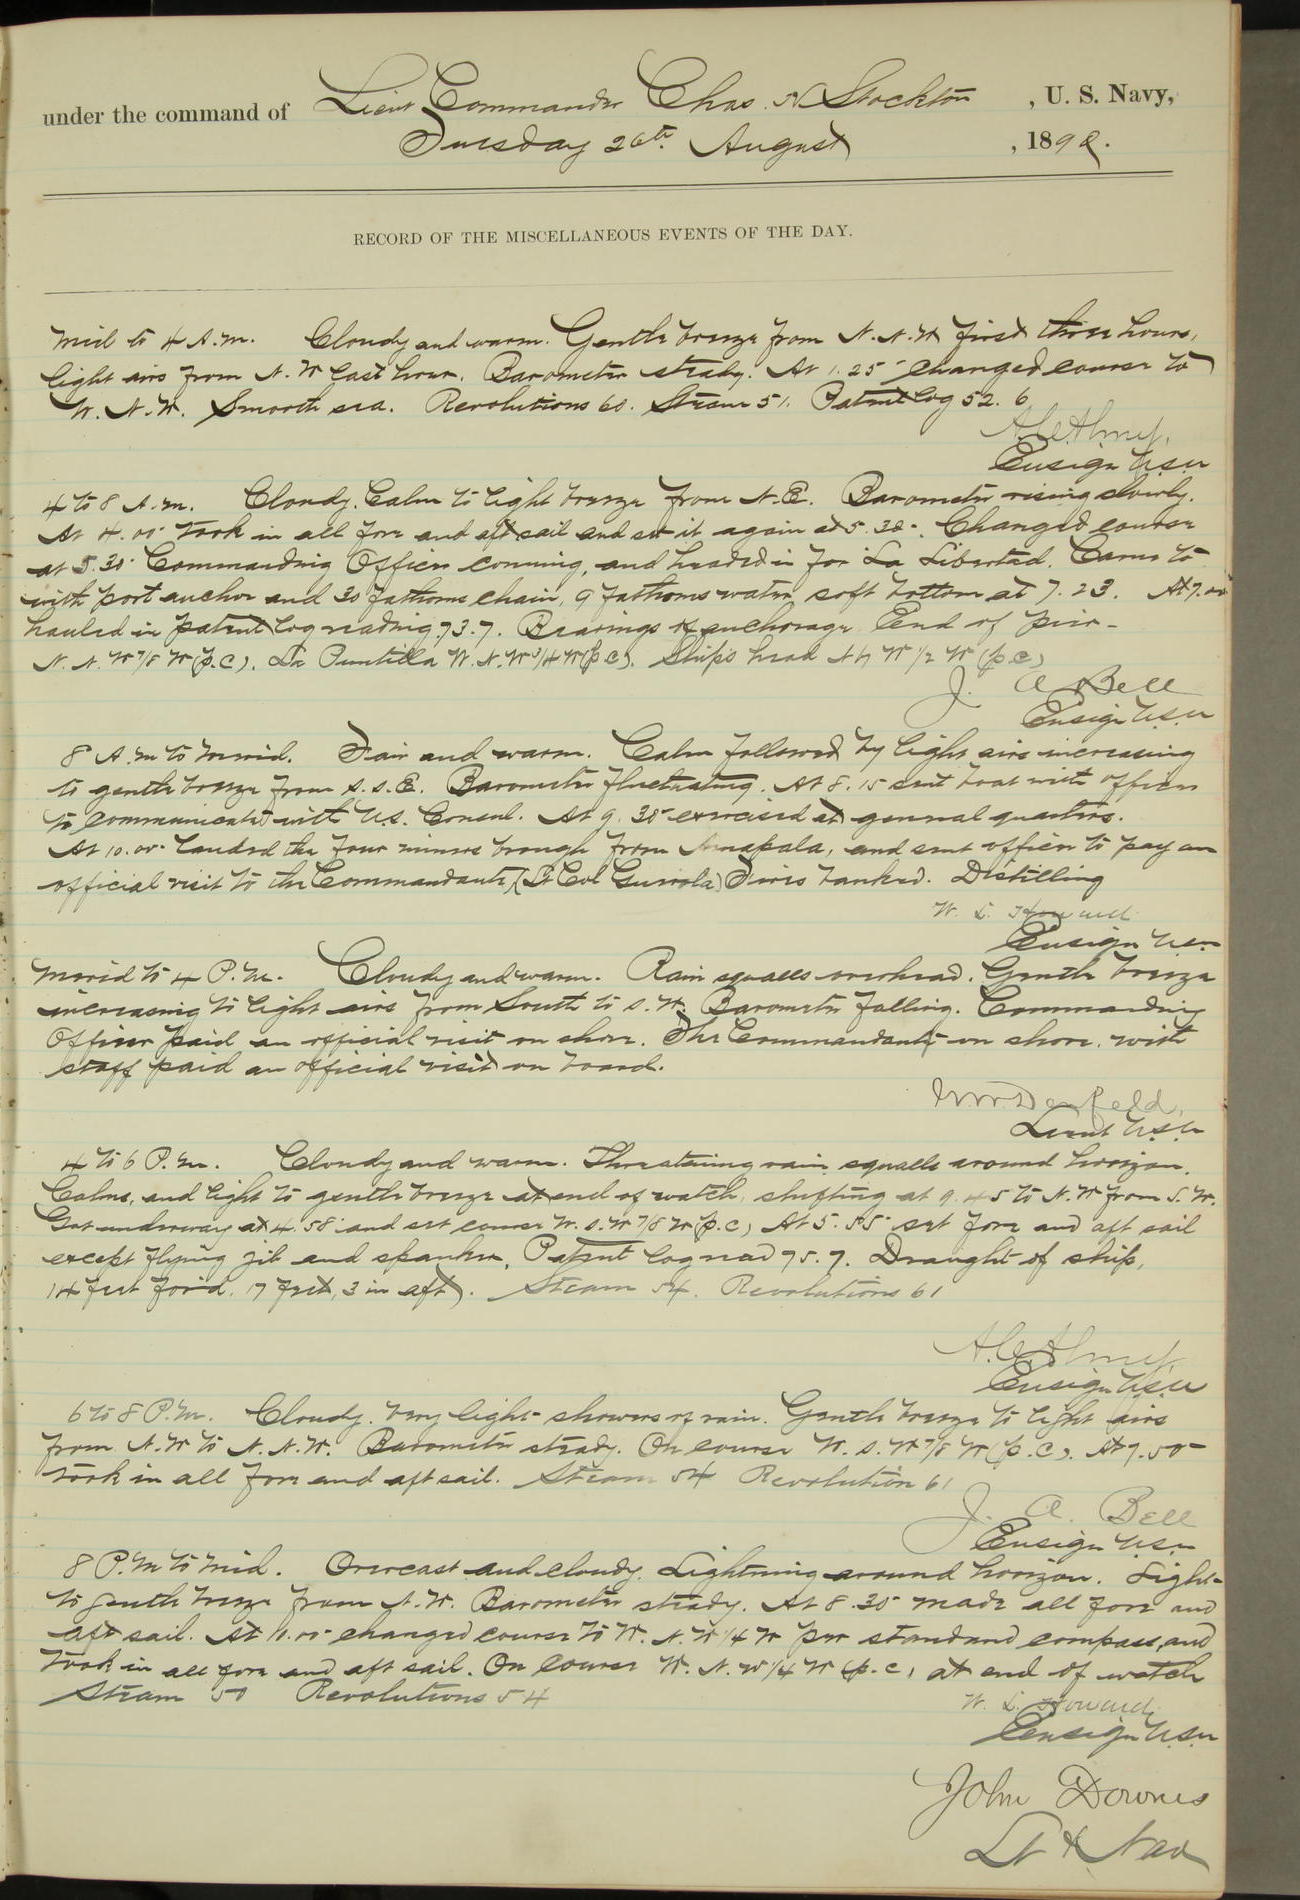 under the command of Lieut Commander Chas. H Stockton, U. S. Navy,
Tuesday 26th. August, 1890.
RECORD OF THE MISCELLANEOUS EVENTS OF THE DAY.
Mid to 4 A.M. Cloudy and warm. Gentle breeze from N.N.W first three hours,
light airs from N.W last hour. Barometer steady. At 1.25 changed course to
W.N.W. Smooth sea. Revolutions 60. Steam 51. Patent log 52.6
A.C. Almy,
Ensign U.S.N
4 to 8 A.M. Cloudy. Calm to light breeze from N.E. Barometer rising slowly.
At 4.00 took in all fore and aft sail and set it again at 5.30. Changed course
at 5.30 Commanding Officer conning, and headed in for La Libertad. Came to
with port anchor and 30 fathoms chain, 9 fathoms water, soft bottom at 7.23. At 7.00
hauled in patent log reading 73.7. Bearings of anchorage End of Pier-
N.N.W 7/8 W (p.c). La Puntilla W.N.W 3/4 W (p.c). Ships head N by W 1/2 W (p.c)
J. A Bell
Ensign U.S.N
8 A.M to Merid. Fair and warm. Calm followed by light airs increasing
to gentle breeze from S.S.E. Barometer fluctuating. At 8.15 sent boat with officer
to communicate with U.S. Consul. At 9.30 exercised at general quarters.
At 10.00 landed the four miners brough from Amapala, and sent officer to pay an
official visit to the Commandante, (Lt Col Gurrola) Fires banked. Distilling
W. L. Howard
Ensign U.S.N
Merid to 4 P.M. Cloudy and warm. Rain squalls overhead. Gentle breeze
increasing to light airs from South to S.W. Barometer falling. Commanding
Officer paid an official visit on shore. The Commandante on shore with
staff paid an official visit on board.
W.W. Denfeld,
Lieut U.S.N
4 to 6 P.M. Cloudy and warm. Threatening rain squalls around horizon.
Calms, and light to gentle breeze at end of watch, shifting at 9.45 to N.W from S.W.
Got underway at 4.58 and set course W.S.W 7/8 W (p.c) At 5.55 set fore and aft sail
except flying jib and spanker, Patent log read 75.7. Draught of ship,
14 feet for'd. 17 feet, 3 in aft. Steam 54. Revolutions 61
A.C. Almy,
Ensign U.S.N
6 to 8 P.M. Cloudy. Very light showers of rain. Gentle breeze to light airs
from N.W to N.N.W. Barometer steady. On course W.S.W 7/8 W (p.c). At 7.50
took in all fore and aft sail. Steam 54 Revolution 61
J. A. Bell
Ensign U.S.N
8 P.M to Mid. Overcast and cloudy. Lightning around horizon. Light
to gentle breeze from N.W. Barometer steady. At 8.30 made all fore and
aft sail. At 11.00 changed course to W.N.W 1/4 W per standard compass, and
took in all fore and aft sail. On course W.N.W 1/4 W (p.c) at end of watch
Steam 50 Revolutions 54
W. L. Howard.
Ensign U.S.N
John Downes
Lt & Nav